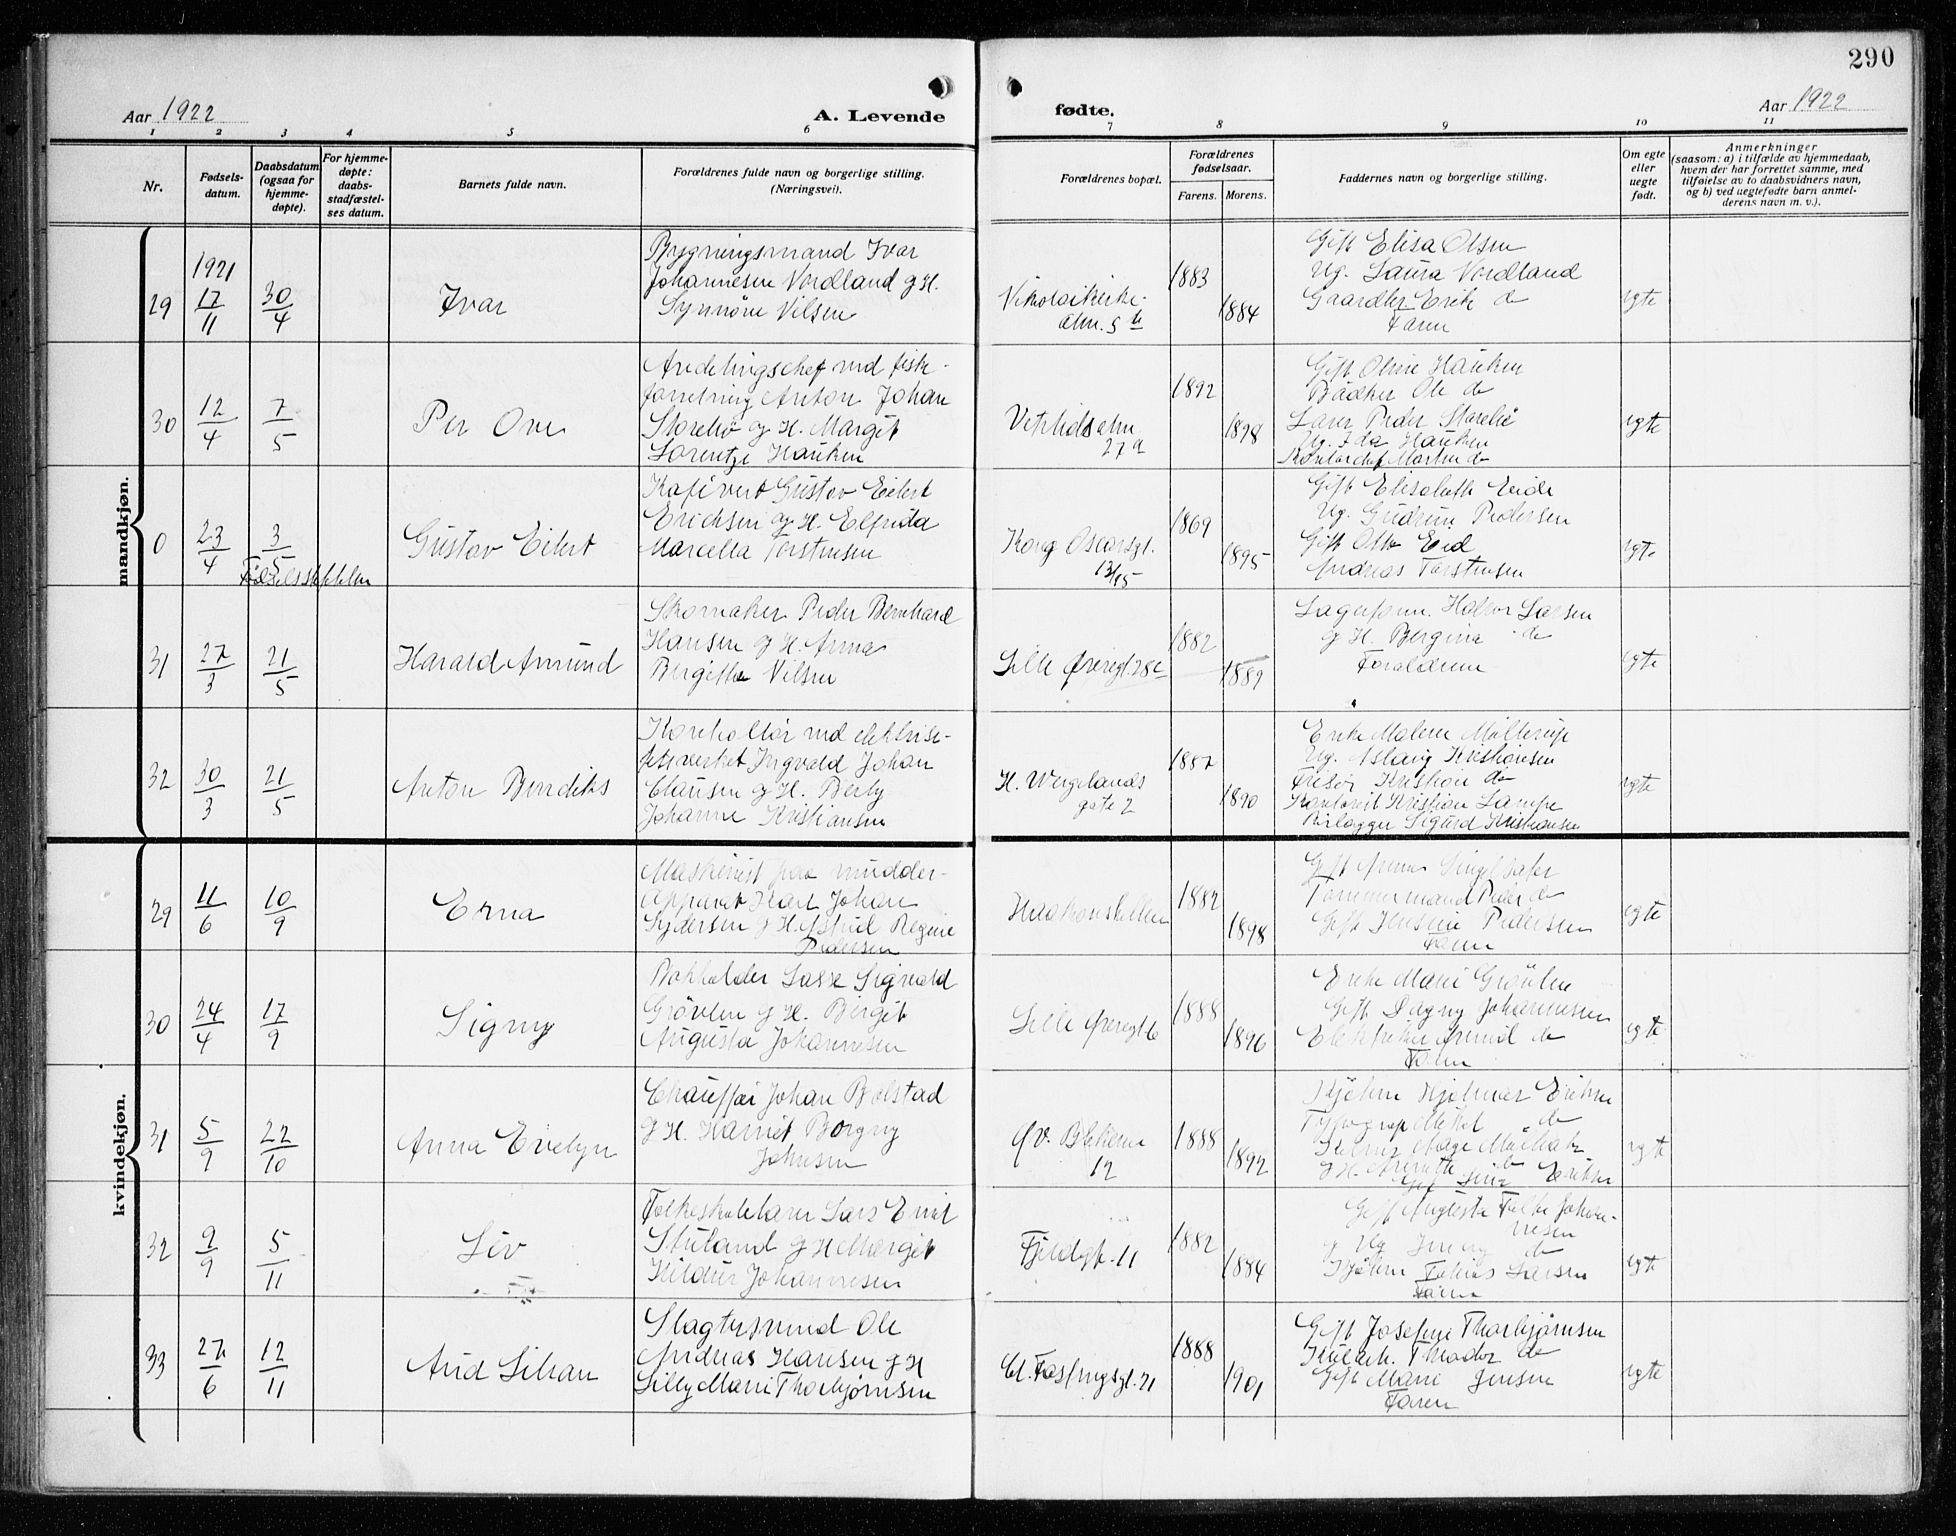 290
Aar 1922
A. Levende
fødte.
Aar 1922
1 2 3 4 5 6 7 8 9 10 11
Nr.
Fødsels-
datum.
Daabsdatum
(ogsaa for
hjemme-
døpte).
For hjemme-
døpte:
daabs-
stadfæstel-
ses datum.
Barnets fulde navn.
Forældrenes fulde navn og borgerlige stilling.
(Næringsvei).
Forældrenes bopæl.
Forældrenes
fødselsaar.
Farens. Morens.
Faddernes navn og borgerlige stilling.
Om egte
eller
uegte
født.
Anmerkninger
(saasom: a) i tilfælde av hjemmedaab,
hvem der har forrettet samme, med
tilføielse av to daabsvidners navn,
og b) ved uegtefødte barn anmel-
derens navn m. v.).
mandkjøn.
29
1921
17/11
30/4
Ivar
Bygningsmand Ivar
Johannesen Nordland g H.
Synnøve Nilsen
Nikolaikirke-
alm. 5 b
1883
1884
Gift Elisa Olsen
Ug. Laura Nordland
Gaardbr Erik do
Faren
egte
30
12/4
7/5
Per Ove
Avdelingschef ved fiske-
forretning Anton Johan
Storebø og H. Margit
Lorentze Hauken
Vetrlidsalm
27 a
1892
1898
Gift Oline Hauken
Bødker Ole do
Lærer Peder Storebø
Ug. Ida Hauken
Kontorchef Martin do
egte
0
23/4
3/5
Fødselsstiftelsen
Gustav Eilert
Kafévert Gustav Eilert
Erichsen og H. Elfrida
Marcella Torstensen
Kong Oscarsgt.
13/15
1869
1895
Gift Elisabeth Eide
Ug. Gudrun Pedersen
Gift Otto Eid
Andreas Torstensen
egte
31
27/3
21/5
Harald Amund
Skomaker Peder Bernhard
Hansen g H. Anna
Birgithe Nilsen
Lille Øvregt. 28c
1882
1889
Lagerform. Halvor Larsen
g H. Bergine do
Forældrene
egte
32
30/3
21/5
Anton Bendiks
Kontrollør ved elektrisi-
tetsverket Ingvald Johan
Clausen g H. Berly
Johanne Kristiansen
H. Wergelands
gate 2
1887
1890
Enke Malene Møllerup
Ug. Aslaug Kristiansen
Frisør Kristian do
Kristian Lampe
Rørlægger Sigurd Kristiansen
egte
kvindekjøn.
29
11/6
10/9
Erna
Maskinist paa mudder-
apparat Karl Johan
Sydersen g H. Astrid Regine
Pedersen
Haakonshallen
1882
1898
Gift Anna
Tømmermand Peder do
Gift Pedersen
Faren
egte
30
24/4
17/9
Signy
Bokholder Lasse Sigvald
Grövlen g H. Birgit
Augusta Johannesen
Lille Øvregt 6
1888
1896
Enke Marie Grövlen
Gift Dagny Johannesen
Elektriker Arvid do
Faren
egte
31
5/9
22/10
Anna Evelyn
Chauffør Johan Bolstad
g H. Harriet Borgny
Johnsen
Øv. Blekevei
12
1888
1892
Frøken Hjalmar Eriksen
Typograf Mikal do
Kelner Aage
g H. Annette do
Gift Eriksen
egte
32
9/9
5/11
Liv
Folkeskolelærer Lars Emil
Støland g H Margit
Hildur Johannesen
Fjeldgt. 11
1882
1884
Gift Augusta Falke Johan-
nesen
g Ug Jenny do
Tobias Larsen
Faren
egte
33
27/6
12/11
Aud Lilian
Slagtersvend Ole
Andreas Hansen g H
Lilly Marie Thorbjørnsen
Cl. Fastingsgt. 21
1888
1901
Gift Josefine Thorbjørnsen
Theodor do
Gift Marie Jensen
Faren
egte